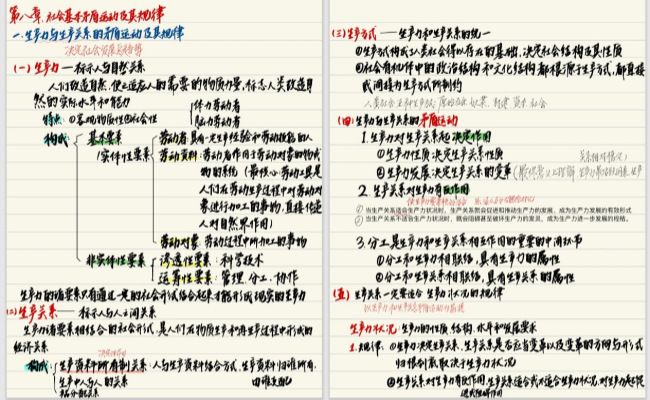 第八章 社会基本矛盾运动及其规律
一.生产力与生产关系矛盾运动及其规律
决定社会发展
(一)生产力——标示人与自然关系
人们改造自然,使之适应人的需要的物质力量,标志人类改造自
然的实际水平和能力
特点:①客观物质性②社会性
体力劳动者
脑力劳动者
构成 基本要素 劳动者:具有一定生产经验和劳动技能的人
(实体性要素) 劳动资料:劳动者作用于劳动对象的物或
物的系统(最核心:劳动工具是
人们在劳动生产过程中对劳动对
象进行加工的事物,直接传递
人对自然界作用)
劳动对象:劳动过程中所加工的事物
非实体性要素 渗透性要素:科学技术
运筹性要素:管理.分工.协作
生产力的诸要素只有通过一定的社会形式结合起来才能形成现实的生产力
(二)生产关系——标示人与人之间关系
生产力诸要素相结合的社会形式,是人们在物质生产和再生产过程中形成的
经济关系
构成 生产资料所有制关系:人与生产资料结合方式,生产资料归谁所有,
由谁支配
生产中人与人的关系
产品分配关系
(三)生产方式——生产力和生产关系的统一
①生产方式构成了人类社会得以存在的基础,决定社会结构及其性质
②社会有机体中的政治结构和文化结构都根源于生产方式,都直接
或间接为生产方式所制约
人类社会五种生产方式:原始 奴隶 封建 资本 社会
(四)生产力与生产关系的矛盾运动
1.生产力对生产关系起决定作用
①生产力性质决定生产关系性质
②生产力发展决定生产关系的变革
2.生产关系对生产力有反作用
① 当生产关系适合生产力状况时,生产关系就会促进和推动生产力的发展,成为生产力发展的有效形式
② 当生产关系不适合生产力状况时,就会阻碍甚至破坏生产力的发展,成为生产力进一步发展的桎梏。
3.分工是生产力和生产关系相互作用的重要的中间环节
①分工和生产力相联结,具有生产力的属性
②分工和生产关系相联结,具有生产关系的属性
(五)生产关系一定要适合生产力状况的规律
生产力状况:生产力的性质.结构.水平和发展要求
1.规律:①生产力决定生产关系,生产关系是否应当变革以及变革的方向与形式
归根到底取决于生产力状况
②生产关系对生产力有反作用,生产关系适合或不适合生产力状况,对生产力起促
进或阻碍作用